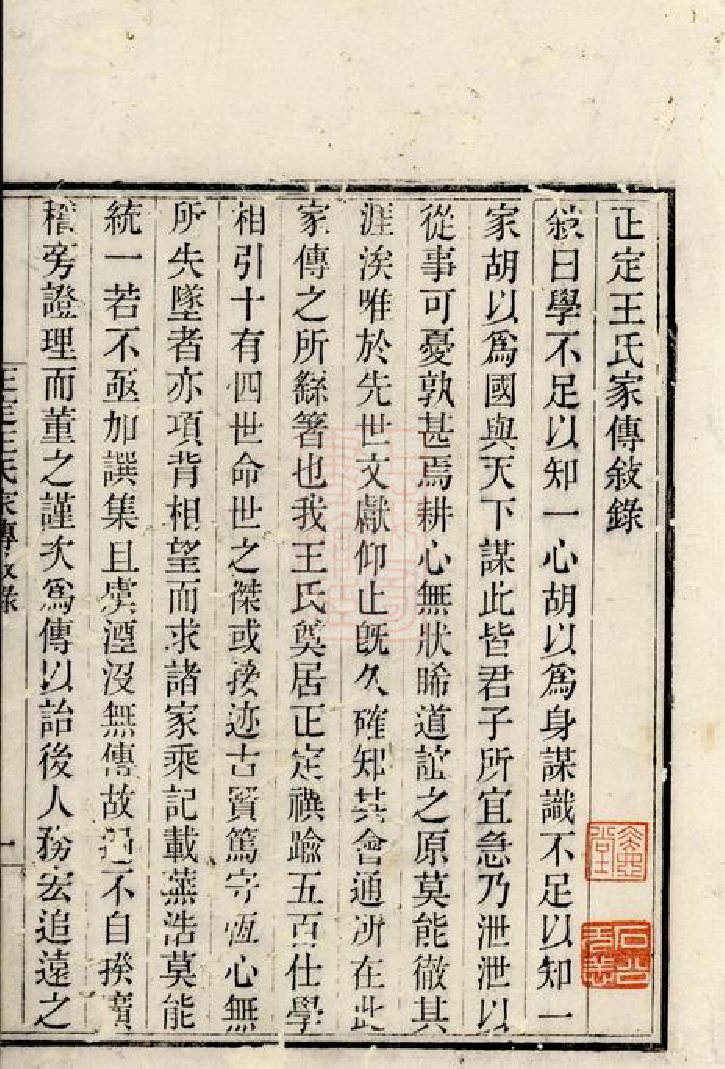 正定王氏家傳敘錄
敘曰學不足以知一心胡以爲身謀識不足以知一
家胡以爲國與天下謀此皆君子所宜急乃泄泄以
從事可憂孰甚焉耕心無狀睎道誼之原莫能徹其
涯涘唯於先世文獻仰止旣久確知其會通所在此
家傳之所繇箸也我王氏奠居正定禩踰五百仕學
相引十有四世命世之傑或接迹古賢篤守恆心無
所失墜者亦項背相望而求諸家乘記載蕪浩莫能
統一若不亟加譔集且虞湮沒無傳故不自揆實
稽旁證理而董之謹次爲傳以詒後人務宏追遠之
正定王氏家傳敘錄
一